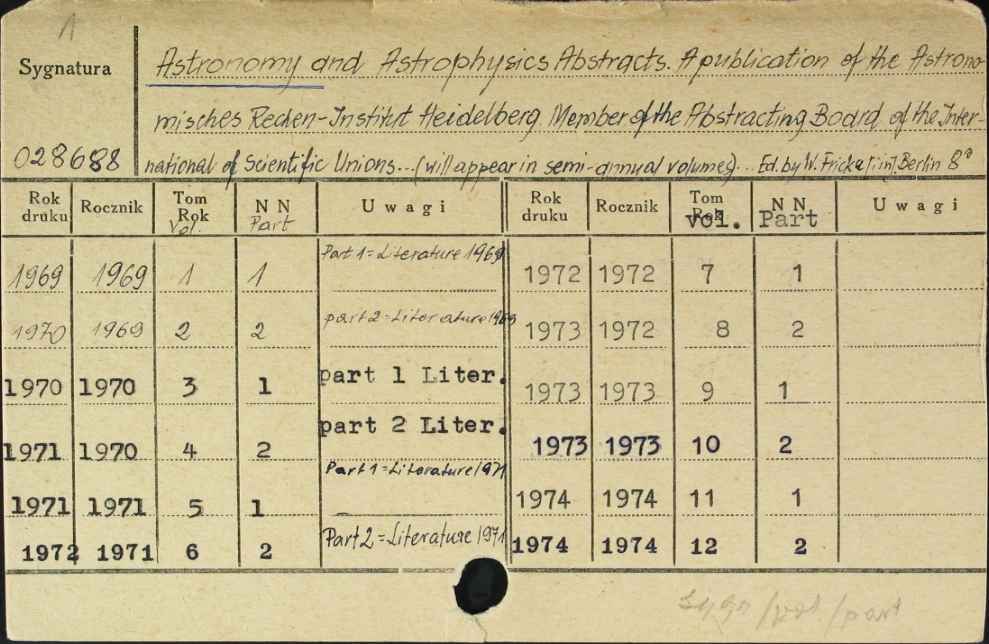 1
Sygnatura
028688
Astronomy and Astrophysics Abstracts. A publication of the Astrono-
misches Rechen-Institut Heidelberg. Member of the Abstracting Board of the Inter-
national of Scientific Unions...(will appear in semi-annual volumes)... Ed. by W. Fricke [i in]. Berlin 8°
Rok druku Rocznik Tom Rok Vol. N N Part Uwagi Rok druku Rocznik Tom Rok vol. N N Part Uwagi
1969 1969 1 1 Part 1 = Literature 1969 1972 1972 7 1
1970 1969 2 2 part 2 = Literature 1969 1973 1972 8 2
1970 1970 3 1 part 1 Liter. 1973 1973 9 1
1971 1970 4 2 part 2 Liter. 1973 1973 10 2
1971 1971 5 1 Part 1 = Literature 1971 1974 1974 11 1
1972 1971 6 2 Part 2 = Literature 1971 1974 1974 12 2
sygn/vol/part